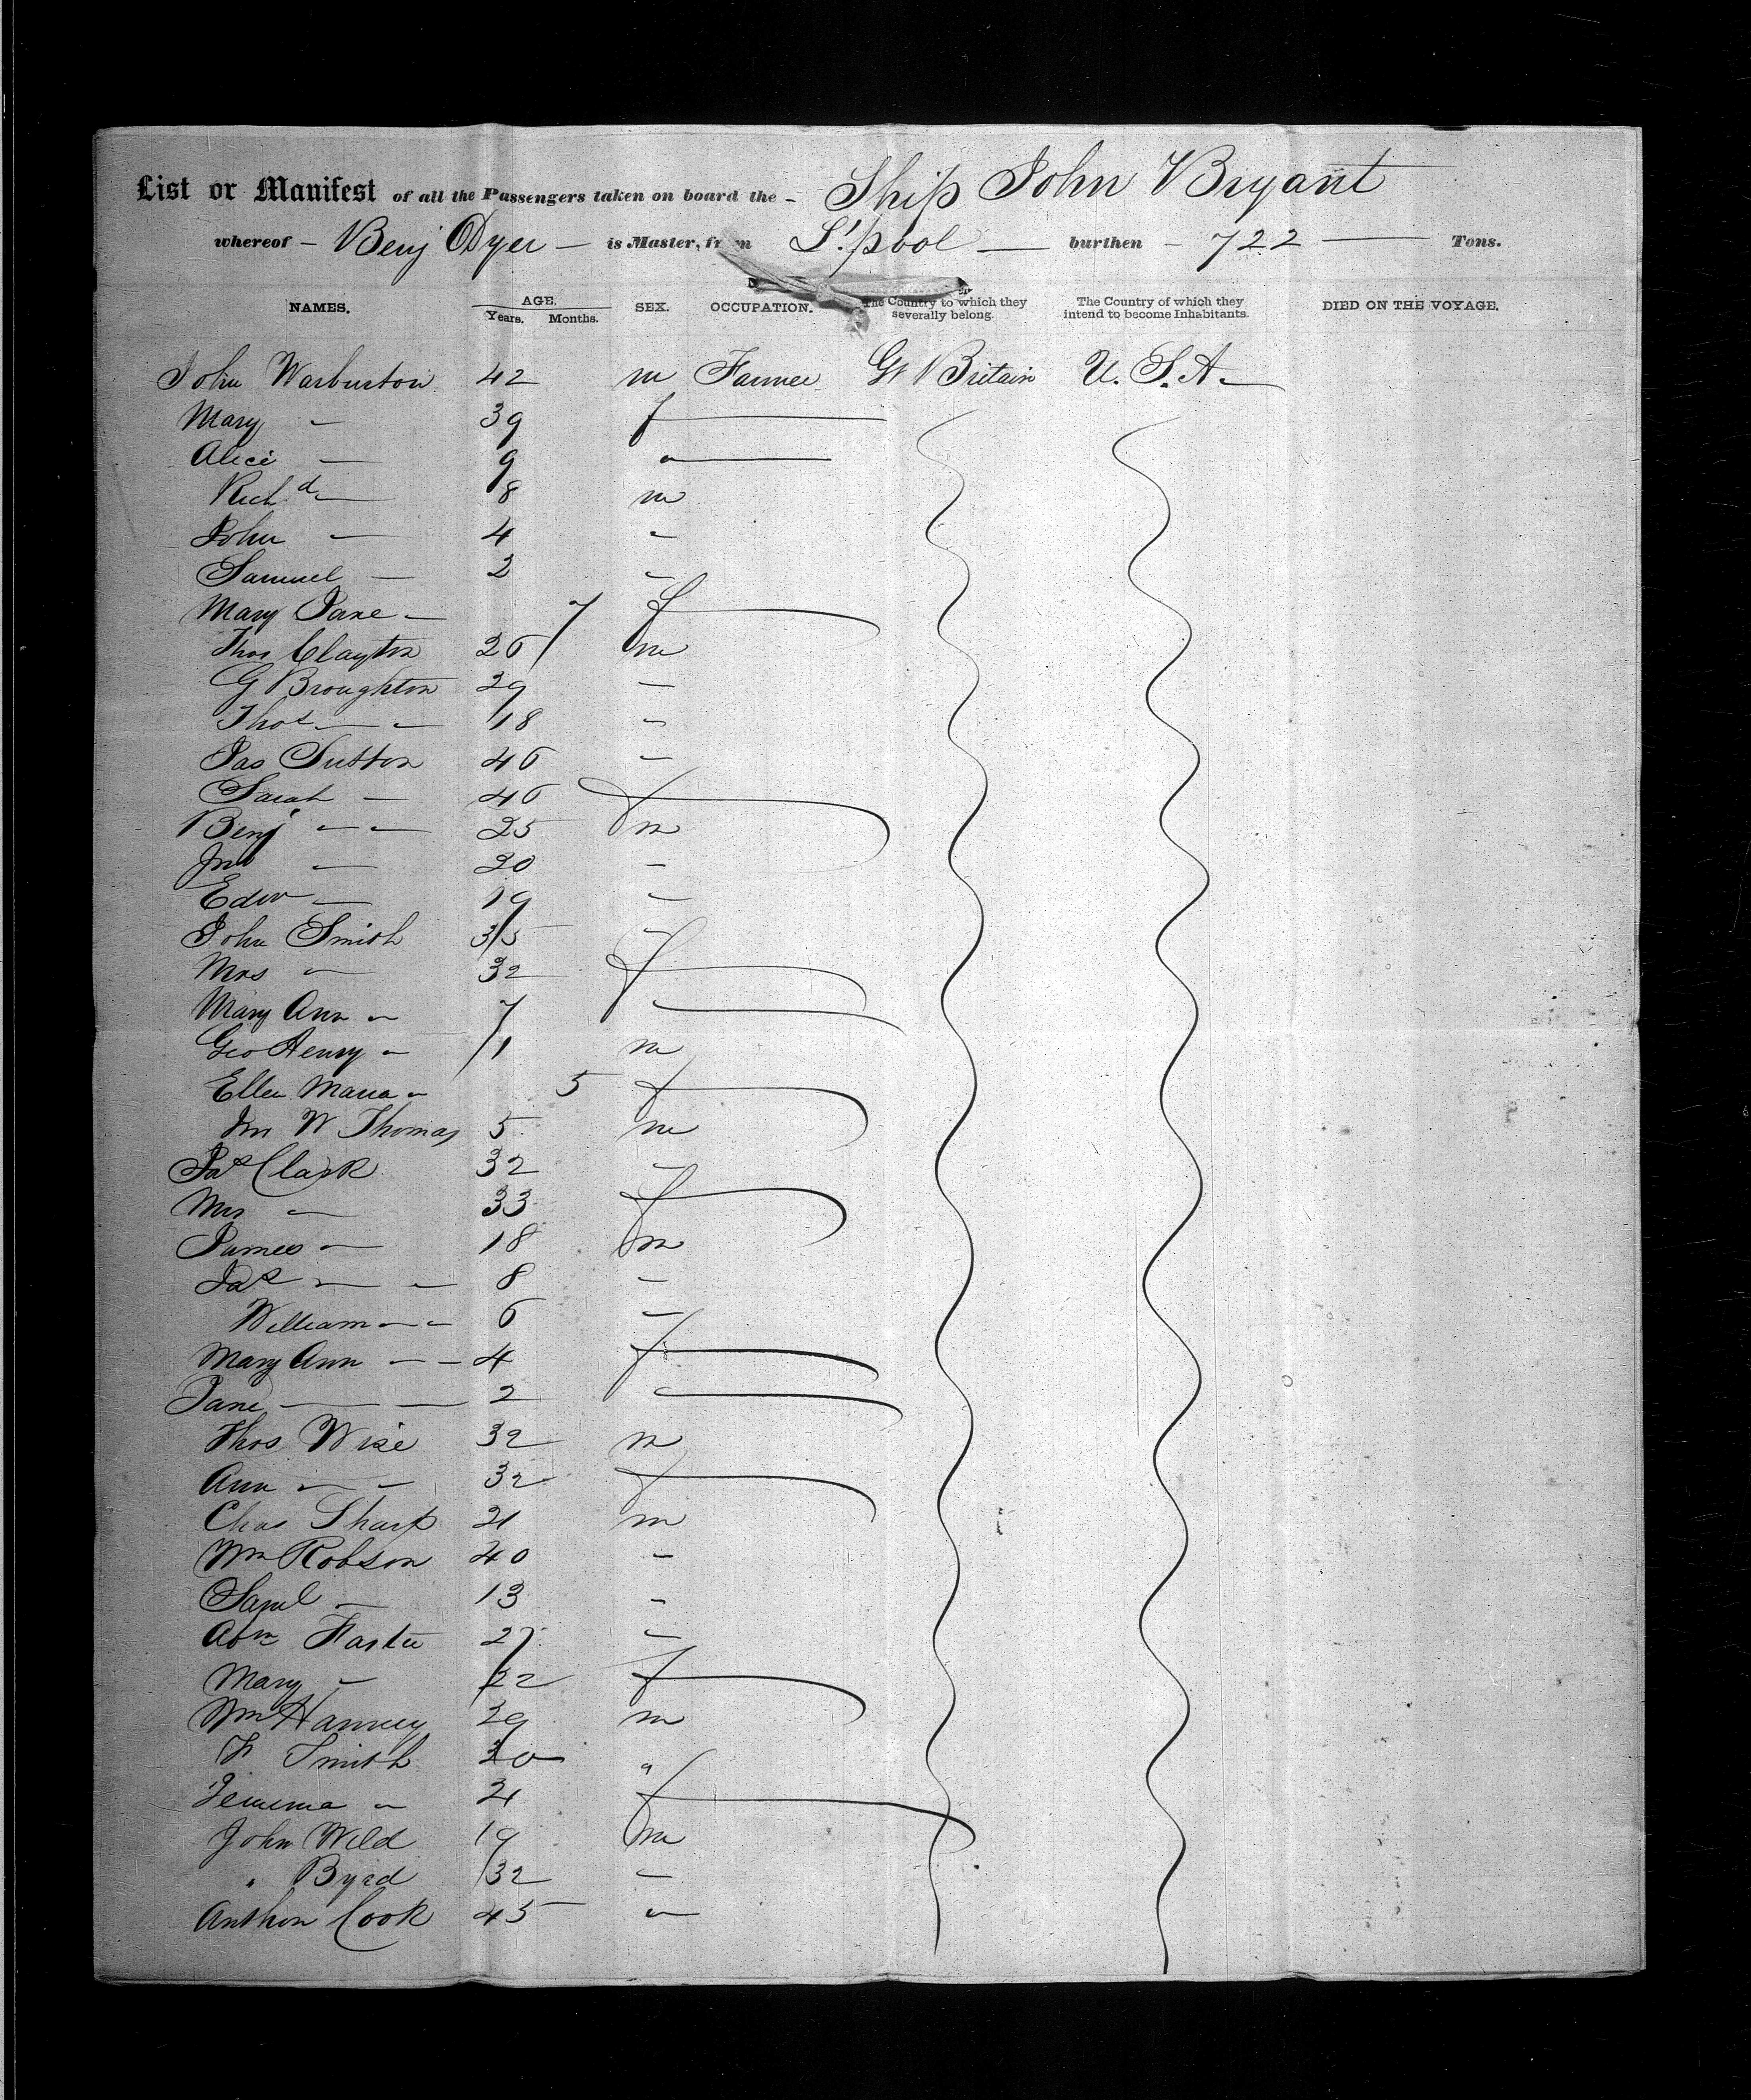 List or Manifest of all the Passengers taken on board the - Ship John Bryant
whereof - Benj Dyer - is Master, from L'pool - burthen - 722 - Tons.
NAMES. AGE. Years. Months. SEX. OCCUPATION. The Country to which they severally belong. The Country of which they intend to become Inhabitants. DIED ON THE VOYAGE.
John Warburton 42 m Farmer Gt Britain U.S.A. -
Mary - 39 f
Alice - 9 "
Richd - 8 m
John - 4 -
Samuel - 2 -
Mary Jane - 7 f
Thos Clayton 26 m
G Broughton 29 -
Thos - - 18 -
Jas Sutton 46 -
Sarah - 46 f
Benj - - 25 m
Jno - 20 -
Edw - 19 -
John Smith 35 -
Mrs " 32 f
Mary Ann " 7 -
Geo Henry " 1 m
Ellen Maria " 5 f
Jno W Thomas 5 m
Jas Clark 32 -
Mrs " 33 f
James " 18 m
Jas - - 8 -
William - - 6 -
Mary Ann - - 4 f
Jane - - 2 -
Thos Wise 32 m
Ann - - 32 f
Chas Sharp 21 m
Wm Robson 40 -
Saml - 13 -
Abm 27 -
Mary - 22 f
Wm 29 m
Smith 20 "
Jemima " 21 f
John Wild 19 m
" Byrd 32 -
Anthon Cook 45 "